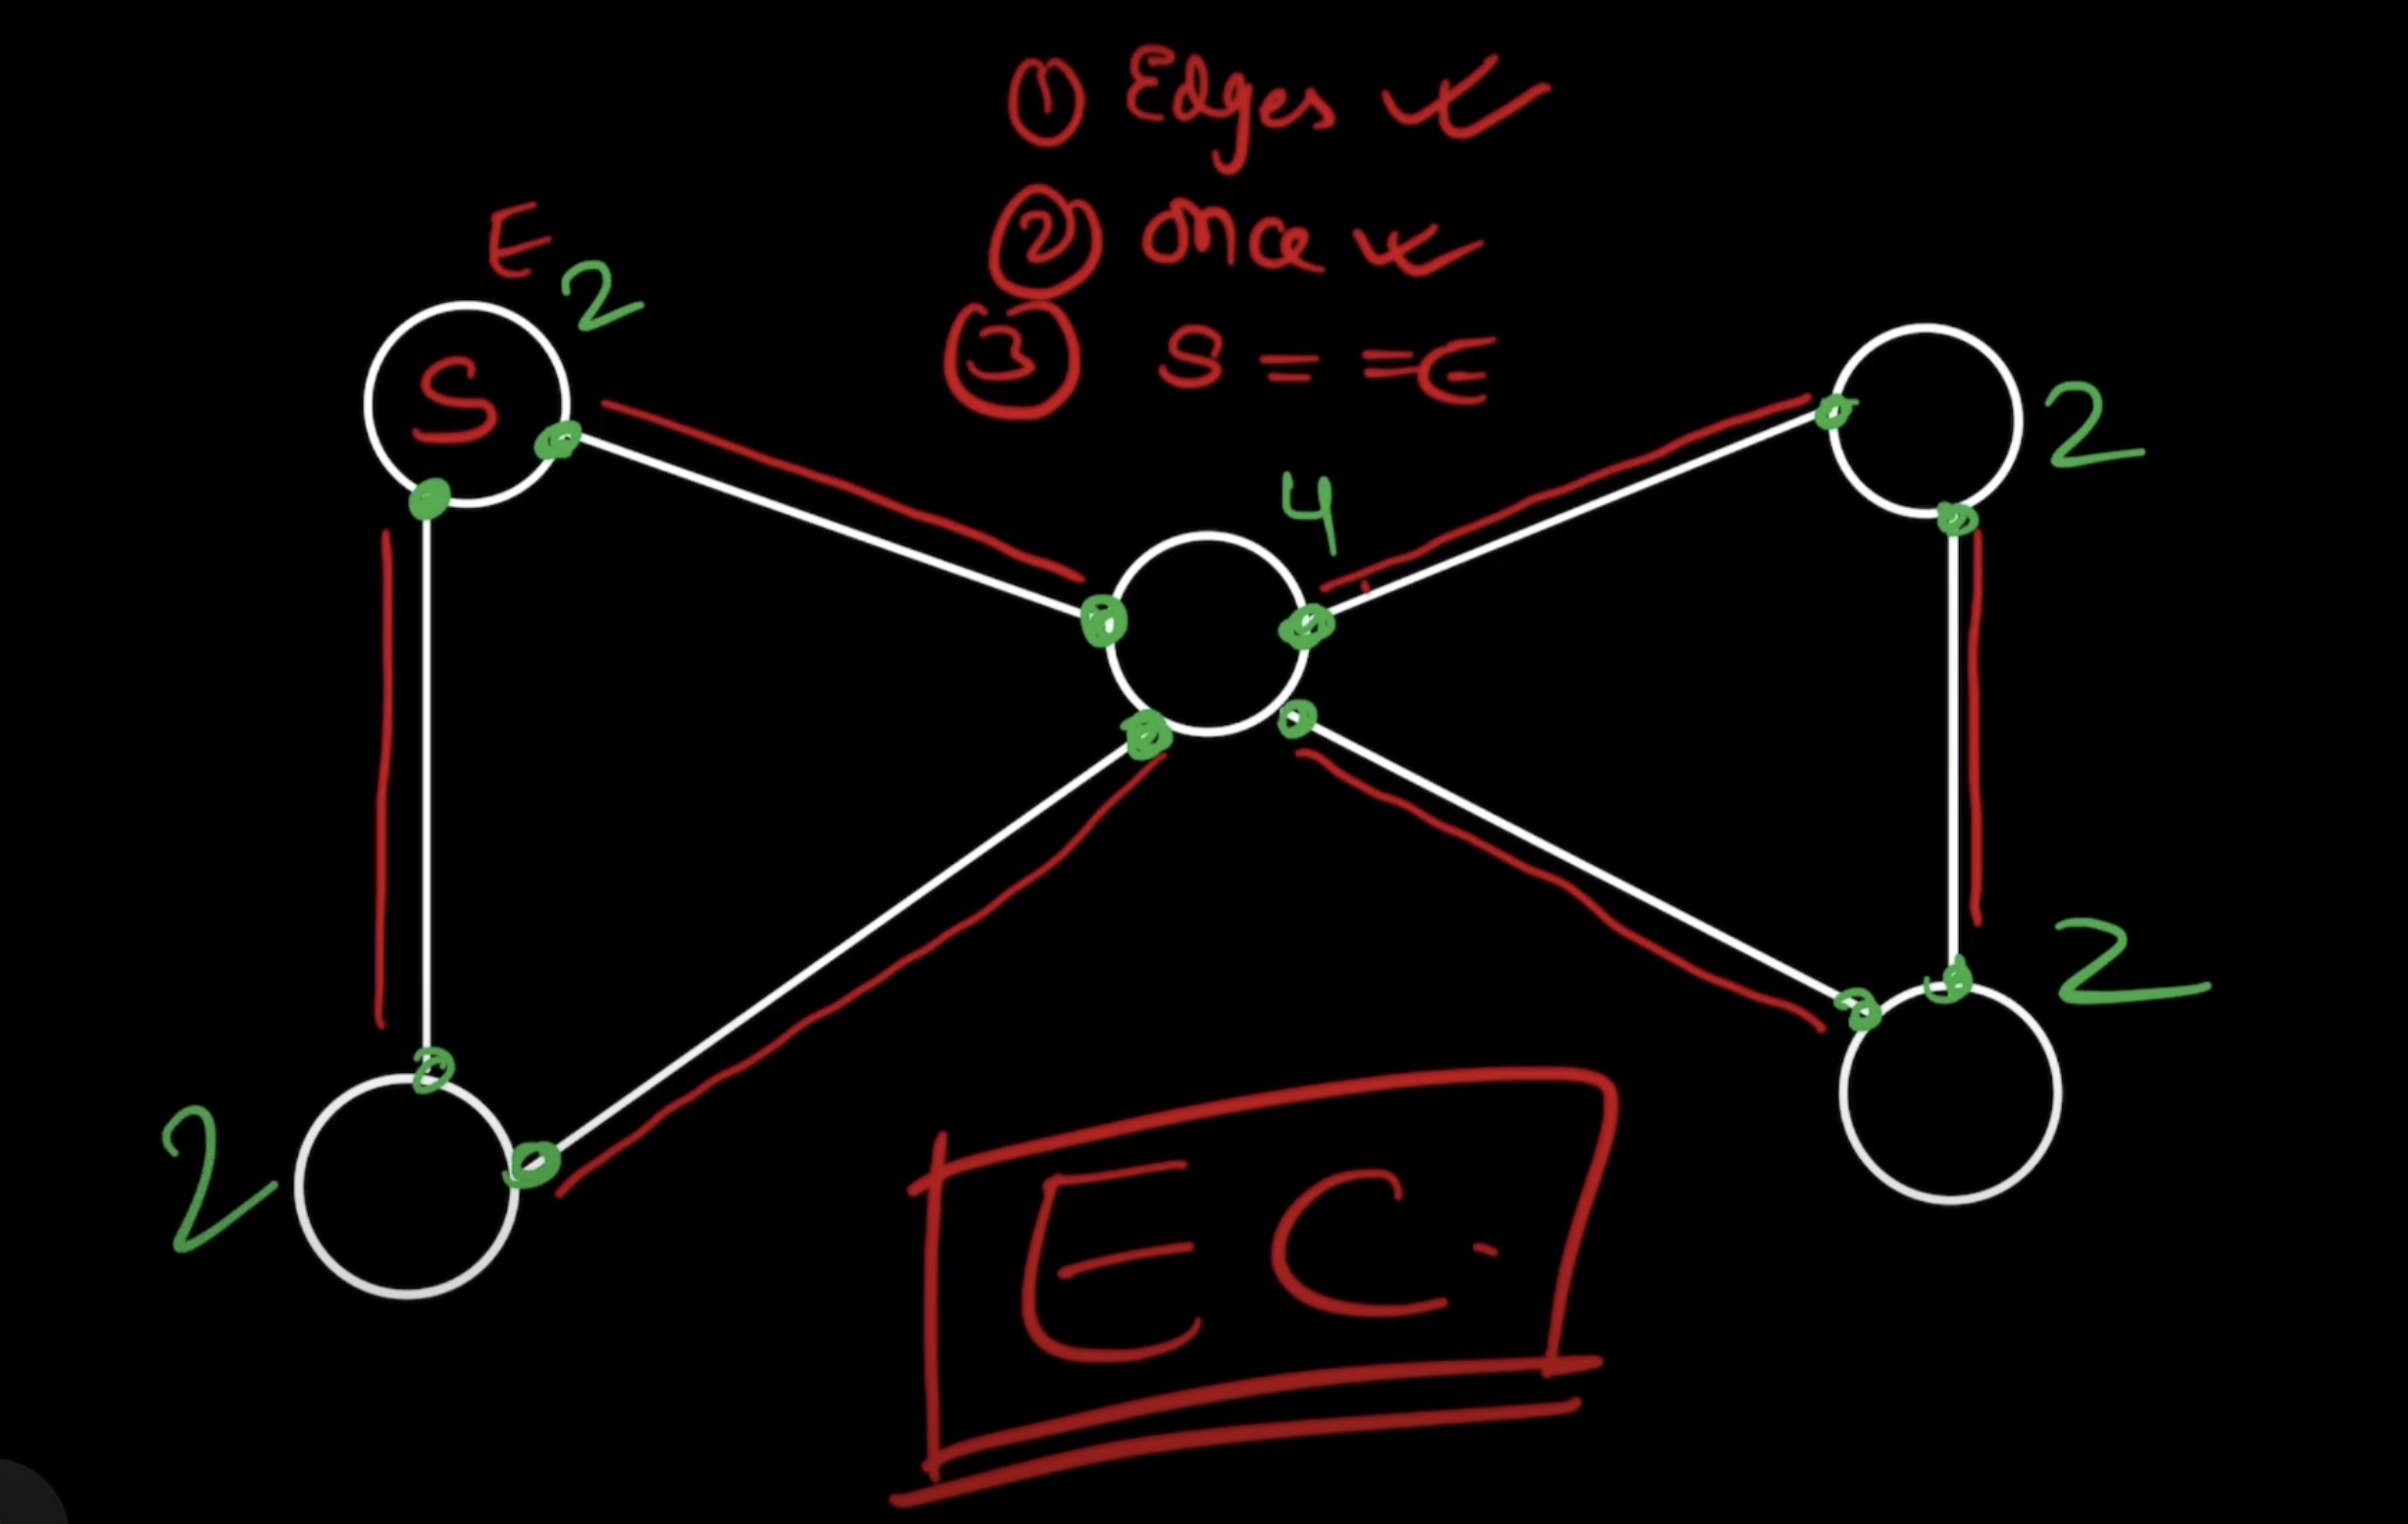 ① Edges
② once
③ S = = E
E
2
S
4
2
2
2
E C